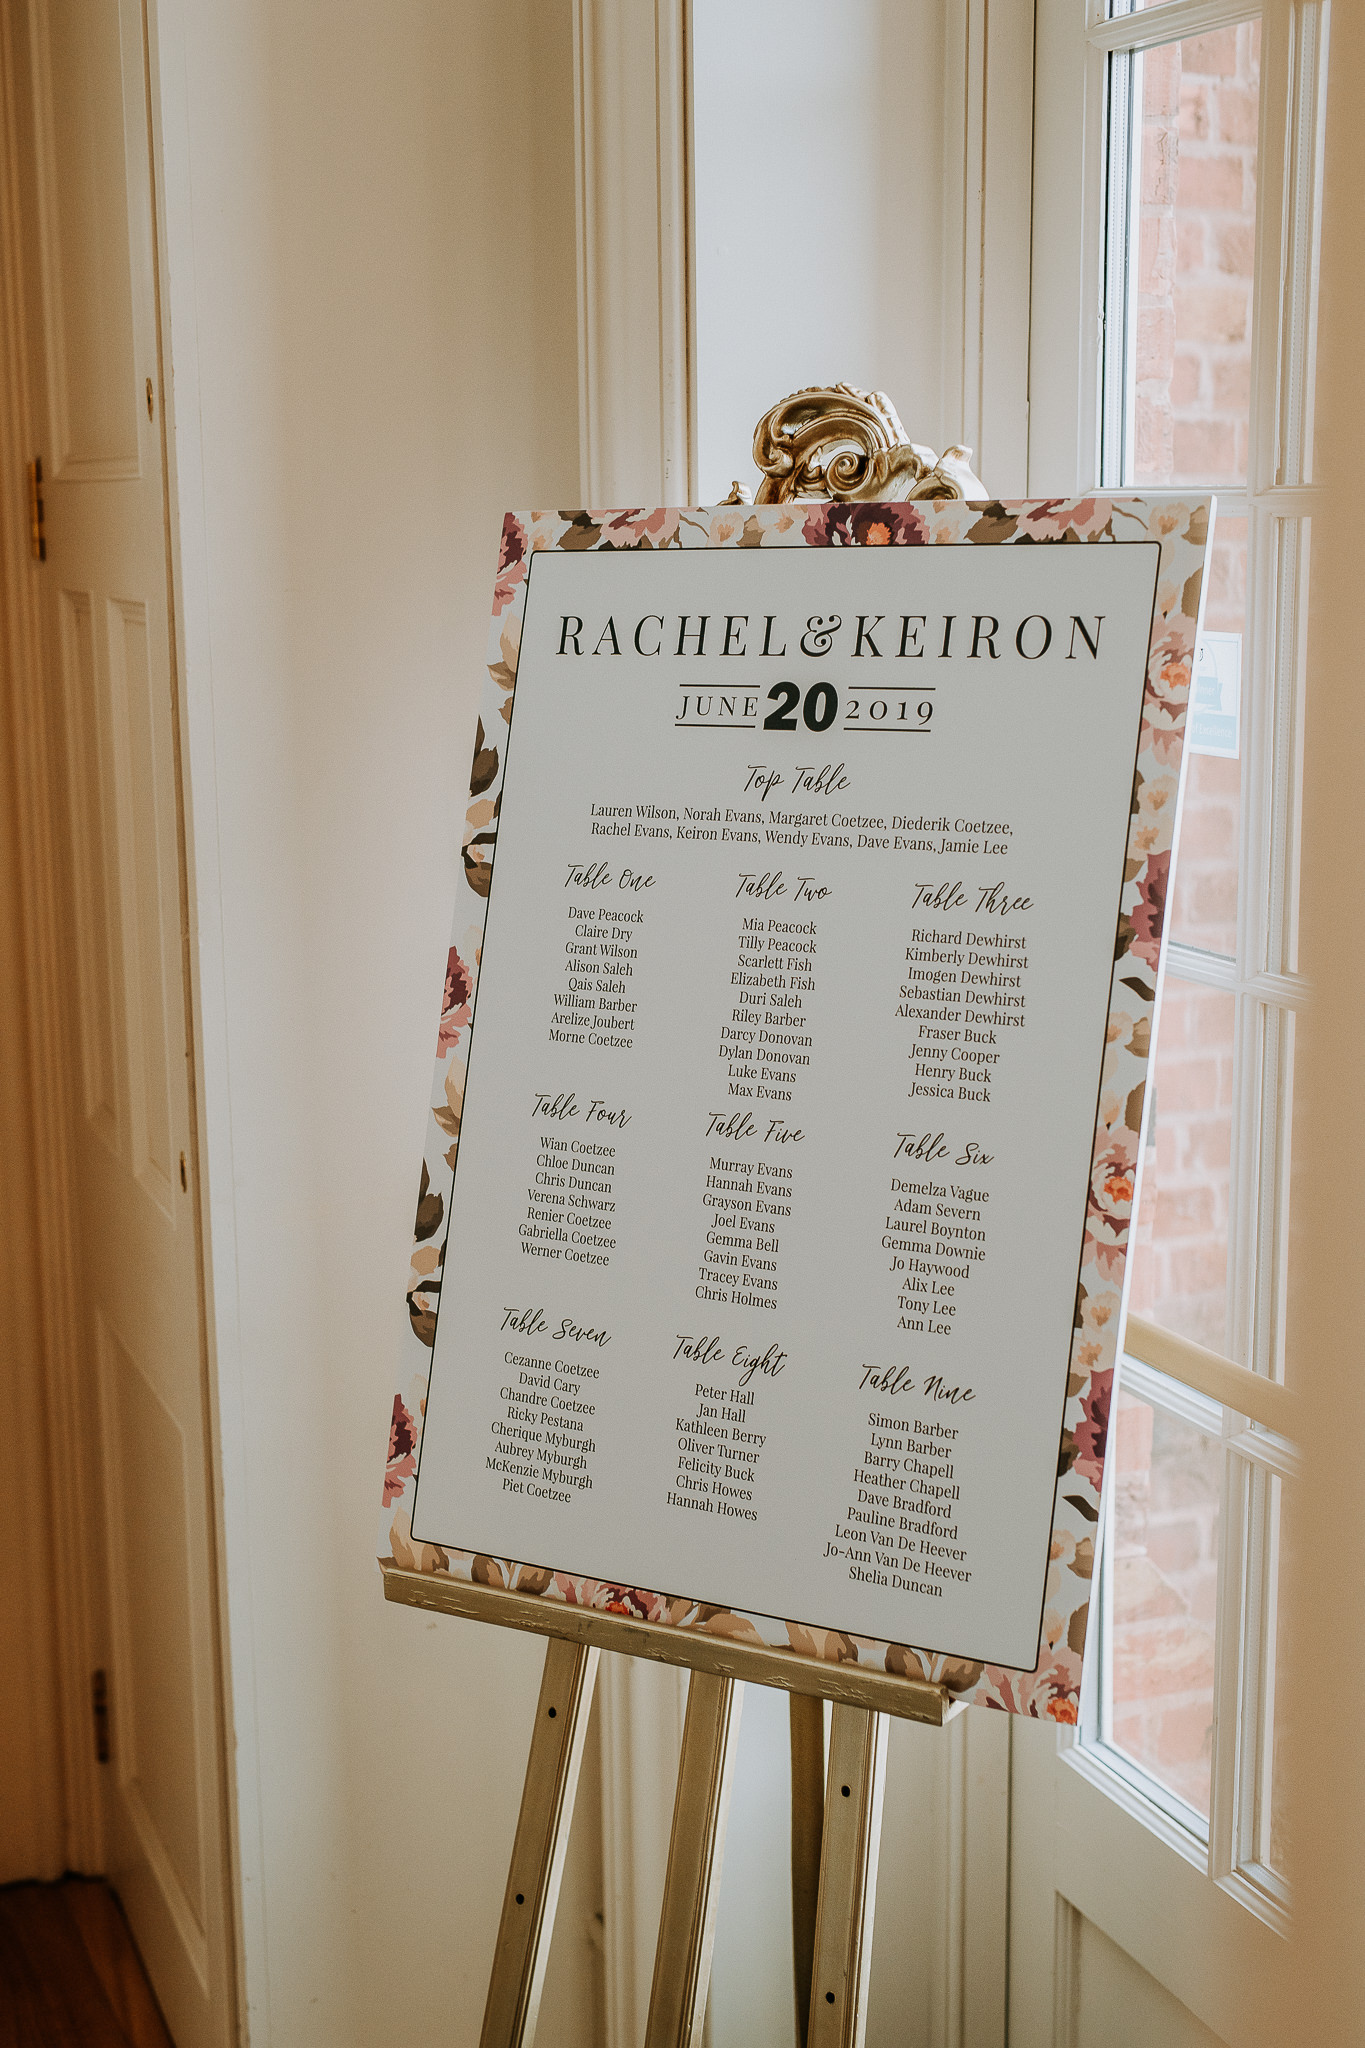 RACHEL & KEIRON
JUNE 20 2019
Top Table
Lauren Wilson, Norah Evans, Margaret Coetzee, Diederik Coetzee,
Rachel Evans, Keiron Evans, Wendy Evans, Dave Evans, Jamie Lee
Table One
Dave Peacock
Claire Dry
Grant Wilson
Alison Saleh
Qais Saleh
William Barber
Arelize Joubert
Morne Coetzee
Table Two
Mia Peacock
Tilly Peacock
Scarlett Fish
Elizabeth Fish
Duri Saleh
Riley Barber
Darcy Donovan
Dylan Donovan
Luke Evans
Max Evans
Table Three
Richard Dewhirst
Kimberly Dewhirst
Imogen Dewhirst
Sebastian Dewhirst
Alexander Dewhirst
Fraser Buck
Jenny Cooper
Henry Buck
Jessica Buck
Table Four
Wian Coetzee
Chloe Duncan
Chris Duncan
Verena Schwarz
Renier Coetzee
Gabriella Coetzee
Werner Coetzee
Table Five
Murray Evans
Hannah Evans
Grayson Evans
Joel Evans
Gemma Bell
Gavin Evans
Tracey Evans
Chris Holmes
Table Six
Demelza Vague
Adam Severn
Laurel Boynton
Gemma Downie
Jo Haywood
Alix Lee
Tony Lee
Ann Lee
Table Seven
Cezanne Coetzee
David Cary
Chandre Coetzee
Ricky Pestana
Cherique Myburgh
Aubrey Myburgh
McKenzie Myburgh
Piet Coetzee
Table Eight
Peter Hall
Jan Hall
Kathleen Berry
Oliver Turner
Felicity Buck
Chris Howes
Hannah Howes
Table Nine
Simon Barber
Lynn Barber
Barry Chapell
Heather Chapell
Dave Bradford
Pauline Bradford
Leon Van De Heever
Jo-Ann Van De Heever
Shelia Duncan